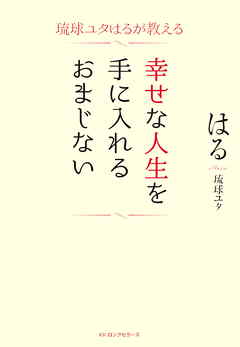 琉球ユタはるが教える
幸せな人生を
手に入れる
おまじない
はる
琉球ユタ
KKロングセラーズ